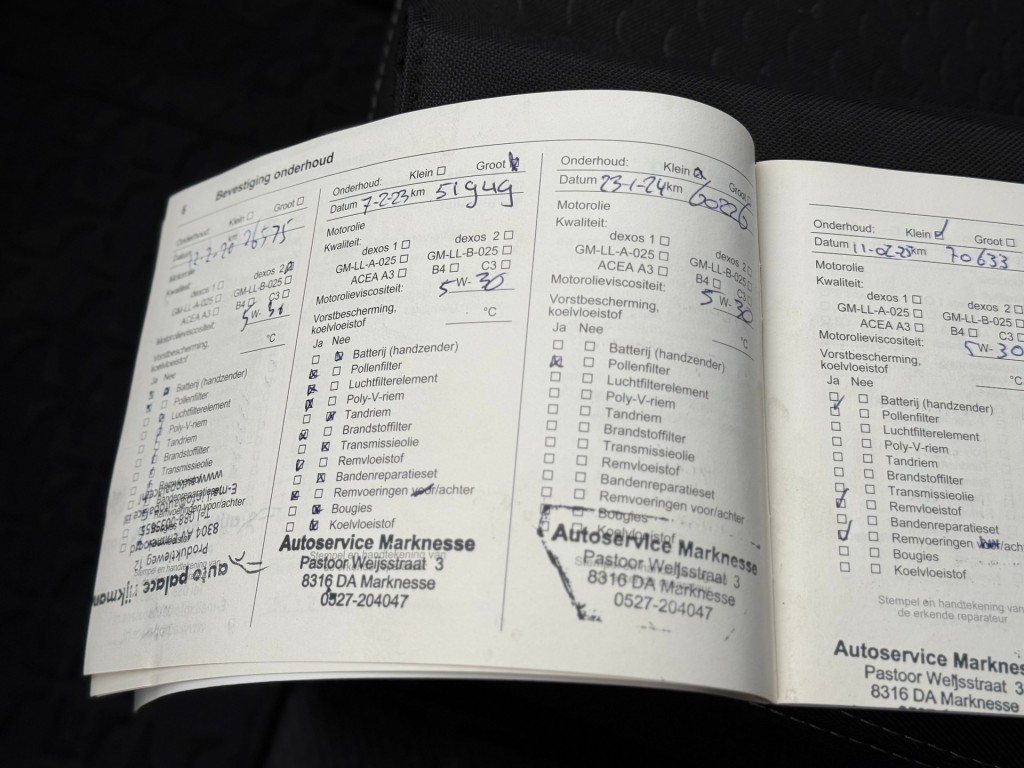 6
Bevestiging onderhoud
Onderhoud: Klein Groot
km 26575
Motorolie
Kwaliteit: dexos 2
dexos 1
GM-LL-A-025 GM-LL-B-025
ACEA A3 B4 C3
Motorolieviscositeit: 5 W- 30
Vorstbescherming,
koelvloeistof °C
Ja Nee
Batterij (handzender)
Pollenfilter
Luchtfilterelement
Poly-V-riem
Tandriem
Brandstoffilter
Transmissieolie
Bandenreparatieset
Remvoeringen voor/achter
auto palace
Produktieweg 12
Onderhoud: Klein Groot
Datum 7-2-23 km 51949
Motorolie
Kwaliteit:
dexos 1 dexos 2
GM-LL-A-025 GM-LL-B-025
ACEA A3 B4 C3
Motorolieviscositeit: 5 W- 30
Vorstbescherming,
koelvloeistof °C
Ja Nee
Batterij (handzender)
Pollenfilter
Luchtfilterelement
Poly-V-riem
Tandriem
Brandstoffilter
Transmissieolie
Remvloeistof
Bandenreparatieset
Remvoeringen voor/achter
Bougies
Koelvloeistof
Stempel en handtekening van
Autoservice Marknesse
Pastoor Weijsstraat 3
8316 DA Marknesse
0527-204047
Onderhoud: Klein Groot
Datum 23-1-24 km 60226
Motorolie
Kwaliteit:
dexos 1 dexos 2
GM-LL-A-025 GM-LL-B-025
ACEA A3 B4 C3
Motorolieviscositeit: 5 W- 30
Vorstbescherming,
koelvloeistof °C
Ja Nee
Batterij (handzender)
Pollenfilter
Luchtfilterelement
Poly-V-riem
Tandriem
Brandstoffilter
Transmissieolie
Remvloeistof
Bandenreparatieset
Remvoeringen voor/achter
Bougies
Koelvloeistof
Autoservice Marknesse
Pastoor Weijsstraat 3
8316 DA Marknesse
0527-204047
Onderhoud: Klein Groot
Datum 11-02-25 km 70633
Motorolie
Kwaliteit:
dexos 1 dexos 2
GM-LL-A-025 GM-LL-B-025
ACEA A3 B4 C3
Motorolieviscositeit: 5 W- 30
Vorstbescherming,
koelvloeistof °C
Ja Nee
Batterij (handzender)
Pollenfilter
Luchtfilterelement
Poly-V-riem
Tandriem
Brandstoffilter
Transmissieolie
Remvloeistof
Bandenreparatieset
Remvoeringen /ach
Bougies
Koelvloeistof
Stempel en handtekening van
de erkende reparateur
Autoservice Marknes
Pastoor Weijsstraat 3
8316 DA Marknesse